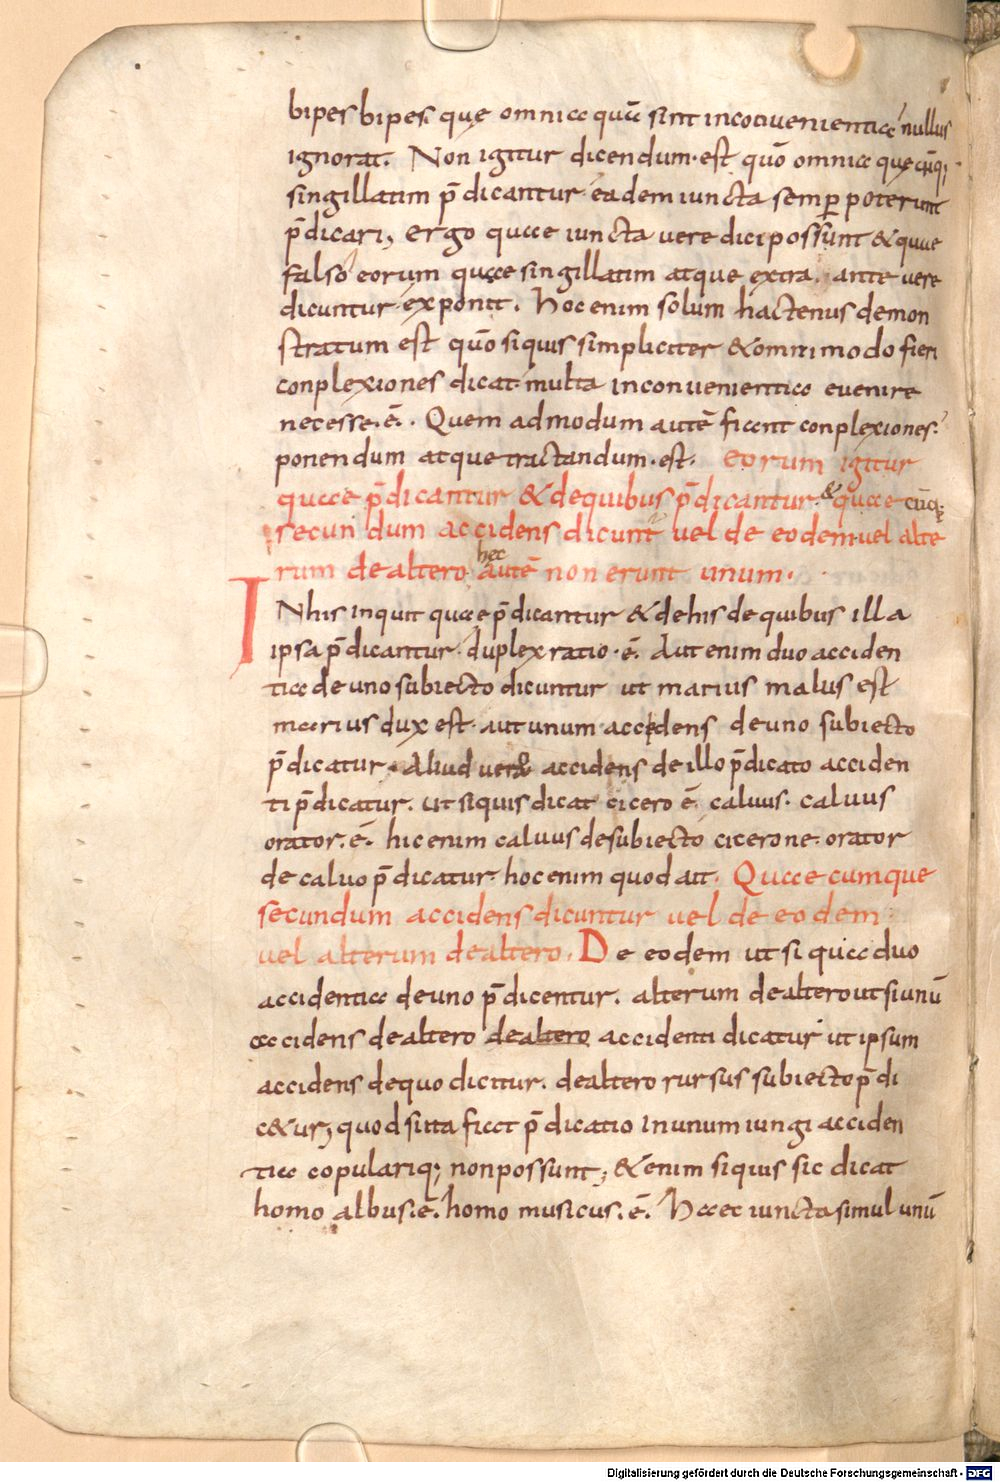 bipes bipes. que omnia quū sint inconuenientia nullus
ignorat. Non igitur dicendum·est quō omnia quęcūq;
singillatim p̄dicantur·eadem iuncta semꝑ poterunt
p̄dicari; ergo quae iuncta uere dici possunt &quae
falso eorum quae singillatim atque extra. ante uere
dicuntur·exponit. hoc enim solum hactenus demon
stratum est quō siquis simpliciter &omnimodo fieri
conplexiones dicat·multa inconuenientia euenire
necesse.ē. Quem admodum autē fiant conplexiones.
ponendum atque tractandum·est. eorum igitur
quae p̄dicantur &dequibus p̄dicantur·& quae cūq;
secundum accidens dicunt̃ uel de eodem uel alte
rum dealtero hęc autē non erunt unum.
INhis inquit quae p̄dicantur &dehis dequibus illa
ipsa p̄dicantur·duplex ratio·ē. Aut enim duo acciden
tia de uno subiecto dicuntur ut marius malus est
marius dux est·aut unum accidens de uno subiecto
p̄dicatur·Aliud uero accidens de illo p̄dicato acciden
ti p̄dicatur. ut siquis dicat cicero ē caluus. caluus
orator.ē. hic enim caluus desubiecto cicerone·orator
de caluo p̄dicatur·hoc enim quod ait. Quae cumque
secundum accidens dicuntur uel de eodem
uel alterum dealtero. De eodem ut si qua duo
accidentia de uno p̄dicentur. alterum dealtero ut si unū
accidens dealtero dealtero accidenti dicatur ut ipsum
accidens dequo dicitur. dealtero rursus subiecto p̄di
c&ur; quod si ita fiat p̄dicatio in unum iungi acciden
tia copulariq; non possunt; &enim siquis sic dicat
homo albus.ē. homo musicus.ē. Haec iuncta simul unū
Digitalisierung gefördert durch die Deutsche Forschungsgemeinschaft - DFG